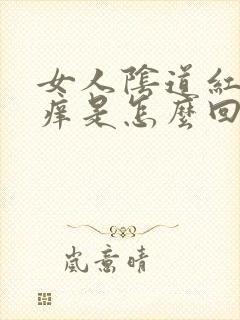 女人陰道紅
痒是怎麼回
嵐意晴